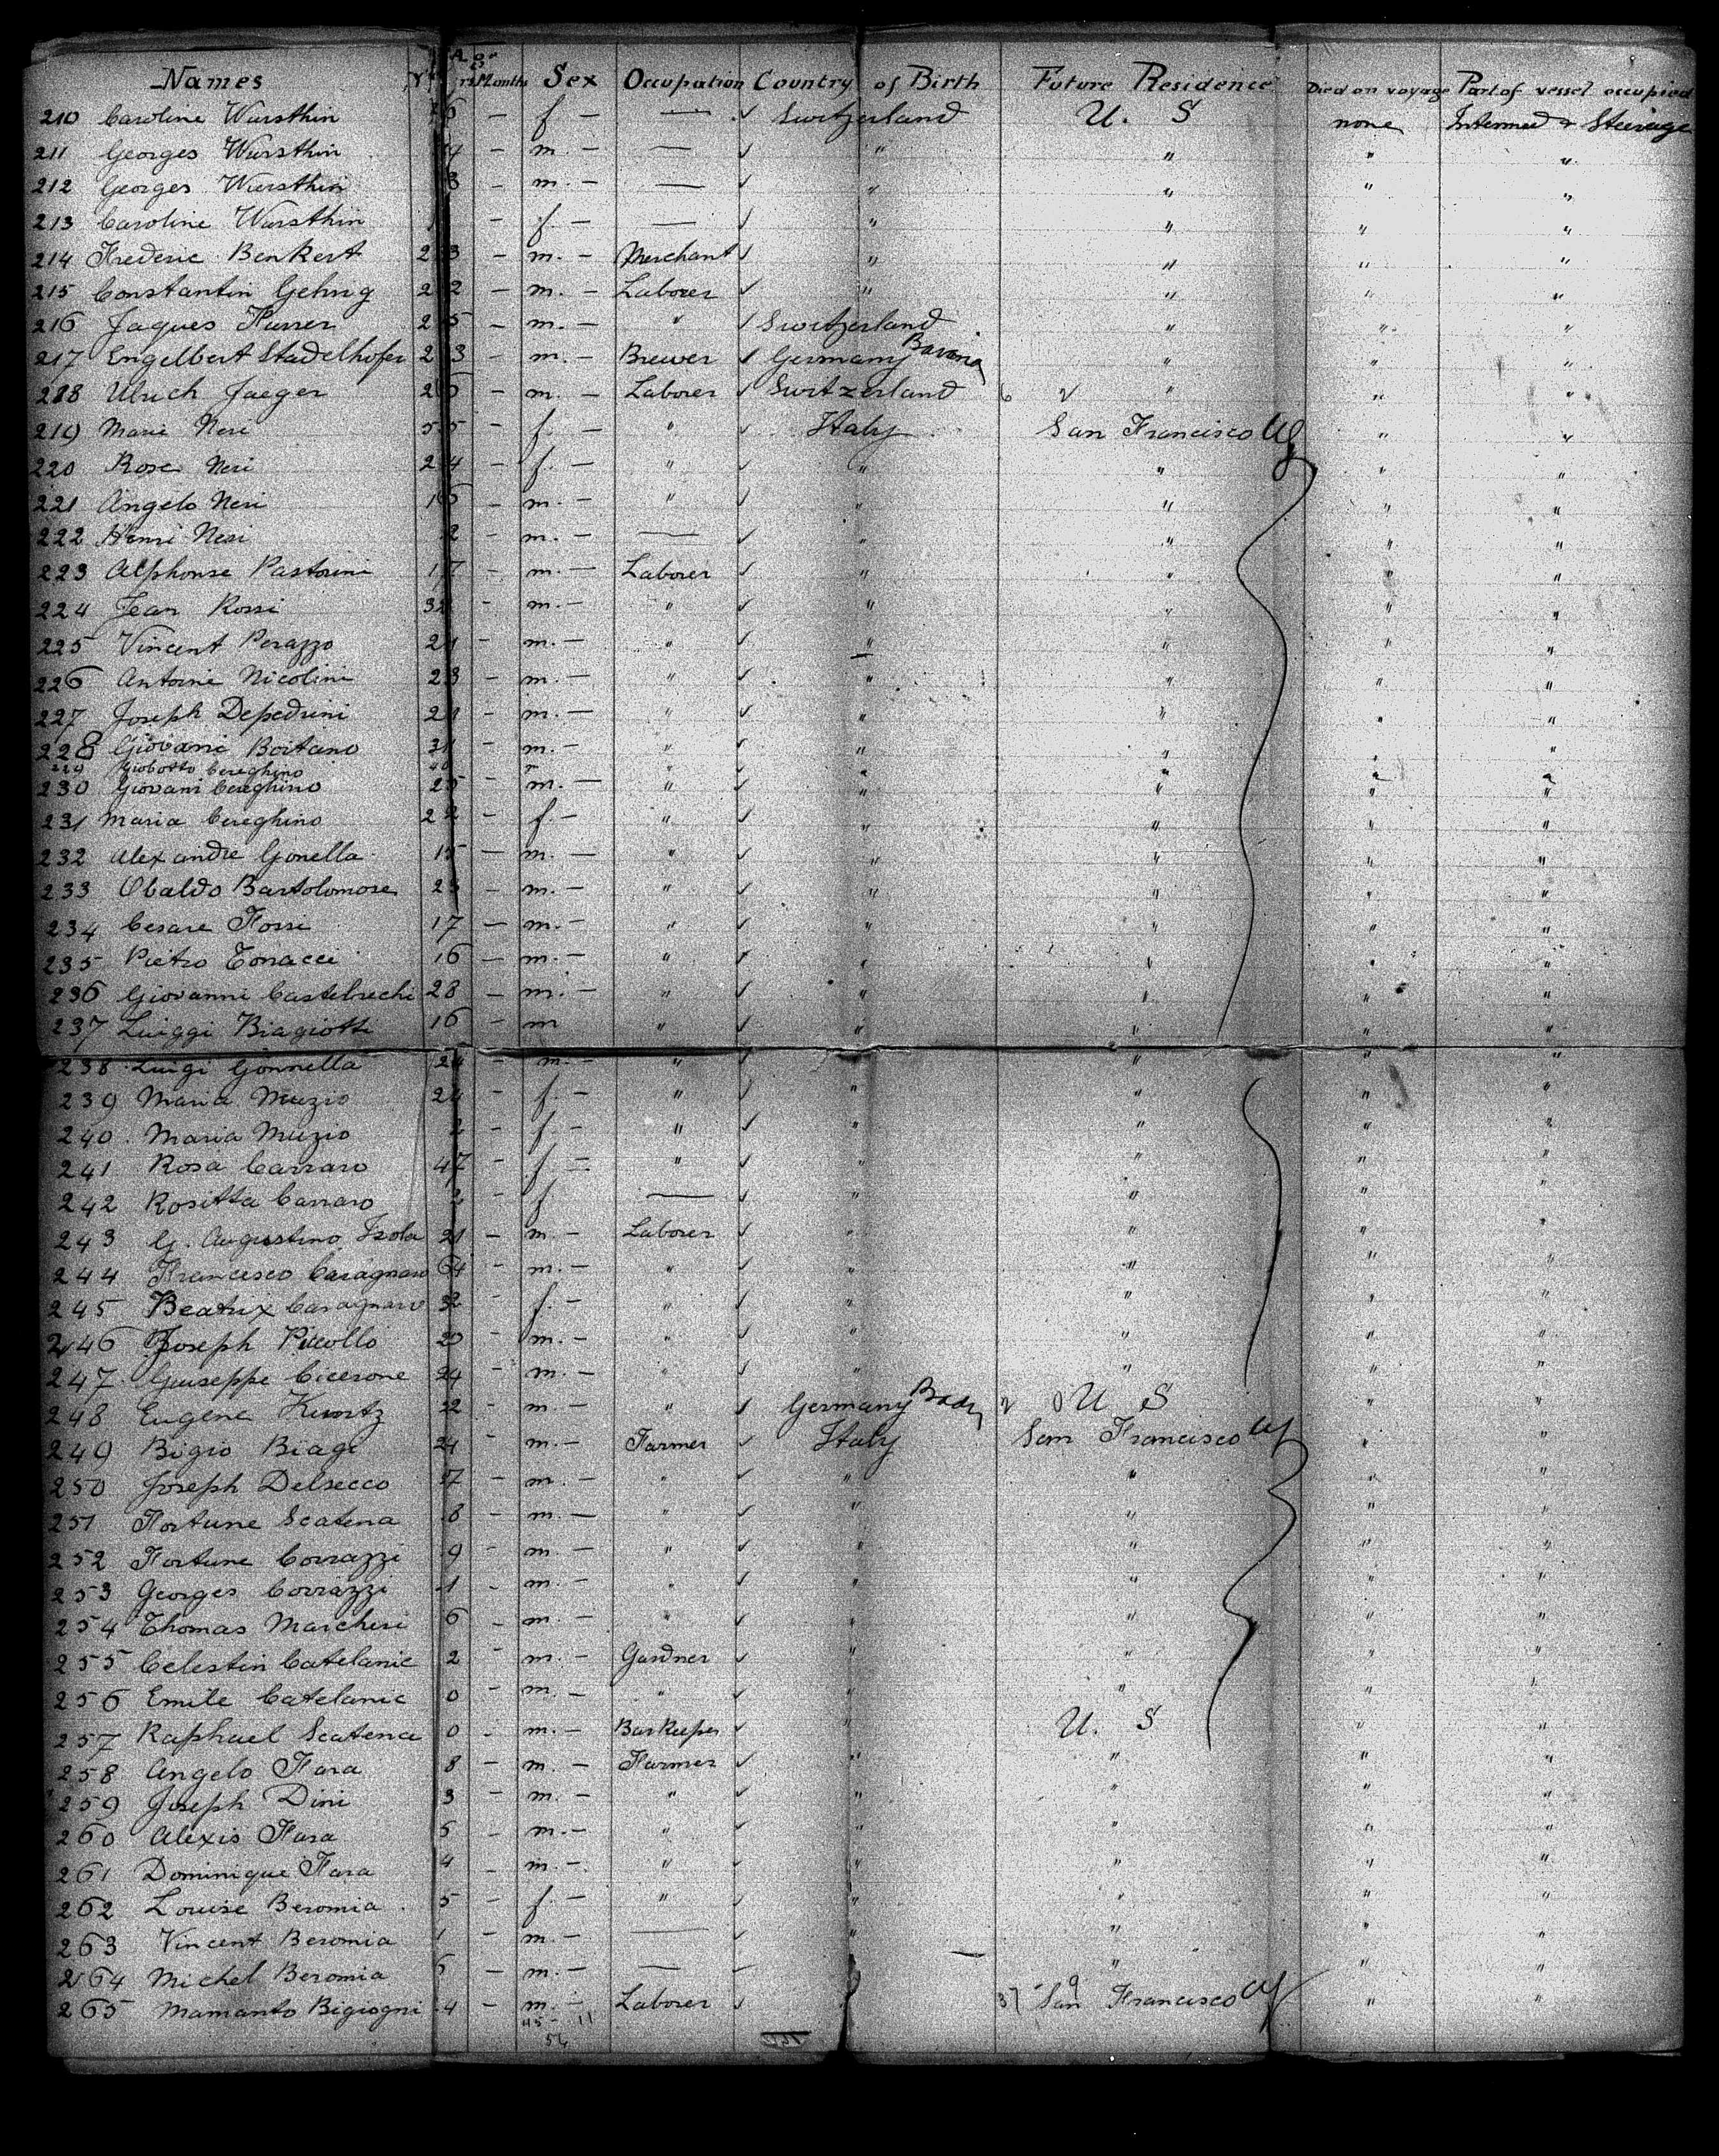 Names Age Yrs Months Sex Occupation Country of Birth Future Residence Died on voyage Part of vessel occupied
210 Caroline Wursthin 6 — f — — ✓ Switzerland U. S none Intermed & Steerage
211 Georges Wursthin 4 — m. — — ✓ " " " "
212 Georges Wursthin 3 — m. — — ✓ " " " "
213 Caroline Wursthin — f. — — ✓ " " " "
214 Frederic Benkert 23 — m. — Merchant ✓ " " " "
215 Constantin Gehrig 22 — m. — Laborer ✓ " " " "
216 Jaques Furrer 25 — m. — " ✓ Switzerland " " "
217 Engelbert Stadelhofer 23 — m. — Brewer ✓ Germany Bavaria " " "
218 Ulrich Jaeger 26 — m. — Laborer ✓ Switzerland " " "
219 Marie Neri 55 — f. — " ✓ Italy San Francisco Cy " "
220 Rose Neri 24 — f. — " ✓ " " " "
221 Angelo Neri 16 — m. — " ✓ " " " "
222 Henri Neri 2 — m. — — ✓ " " " "
223 Alphonse Pastorini 17 — m. — Laborer ✓ " " " "
224 Jean Rossi 3 — m. — " ✓ " " " "
225 Vincent Perazzo 21 — m. — " ✓ " " " "
226 Antoine Nicolini 23 — m. — " ✓ " " " "
227 Joseph Depedrini 21 — m. — " ✓ " " " "
228 Giovani Boitano 31 — m. — " ✓ " " " "
229 Giobatto Cereghino 40 " " " " " "
230 Giovani Cereghino 25 — m. — " ✓ " " " "
231 Maria Cereghino 22 — f. — " ✓ " " " "
232 Alexandre Gonella 15 — m. — " ✓ " " " "
233 Obaldo Bartolomore 23 — m. — " ✓ " " " "
234 Cesare Fossi 17 — m. — " ✓ " " " "
235 Pietro Tonacci 16 — m. — " ✓ " " " "
236 Giovanni Castelrechi 28 — m. — " ✓ " " " "
237 Luiggi Biagiotti 16 — m " ✓ " " " "
238 Luigi Gonnella 24 — m. — " ✓ " " "
239 Maria Muzio 24 — f. — " ✓ " " " "
240 Maria Muzio 2 — f — " ✓ " " " "
241 Rosa Carraro 47 — f — " ✓ " " " "
242 Rositta Carraro 2 — f — ✓ " " " "
243 G. Augustino Isola 21 — m. — Laborer ✓ " " " "
244 Francesco Casagnaro 64 — m. — " ✓ " " " "
245 Beatrix Casagnaro 32 — f. — " ✓ " " " "
246 Joseph Picollo 20 — m. — " ✓ " " " "
247 Guiseppe Cicerone 24 — m. — " ✓ " " "
248 Eugene Kuntz 22 — m. — " ✓ Germany Baden U S " "
249 Bigio Biagi 24 — m. — Farmer ✓ Italy San Francisco Cy " "
250 Joseph Delsecco 7 — m. — " ✓ " " " "
251 Fortune Scatena 8 — m. — " ✓ " " " "
252 Fortune Corrazzi 9 — m. — " ✓ " " " "
253 Georges Corrazzi 1 — m. — " ✓ " " " "
254 Thomas Marcheri 6 — m. — " ✓ " " " "
255 Celestin Catelanie 2 — m. — Gardner ✓ " " " "
256 Emile Catelanie 0 — m. — " ✓ " " " "
257 Raphael Scatena 0 — m. — Barkeeper ✓ " U. S " "
258 Angelo Fara 8 — m. — Farmer ✓ " " " "
259 Joseph Dini 3 — m. — " ✓ " " " "
260 Alexis Fara 5 — m. — " ✓ " " " "
261 Dominique Fara 4 — m. — " ✓ " " " "
262 Louise Beromia 5 — f. — " ✓ " " " "
263 Vincent Beromia 1 — m. — — ✓ " " " "
264 Michel Beromia 5 — m. — — " " " "
265 Mamanto Bigiogni 4 — m. — Laborer ✓ San Francisco Cy " "
45 - 11